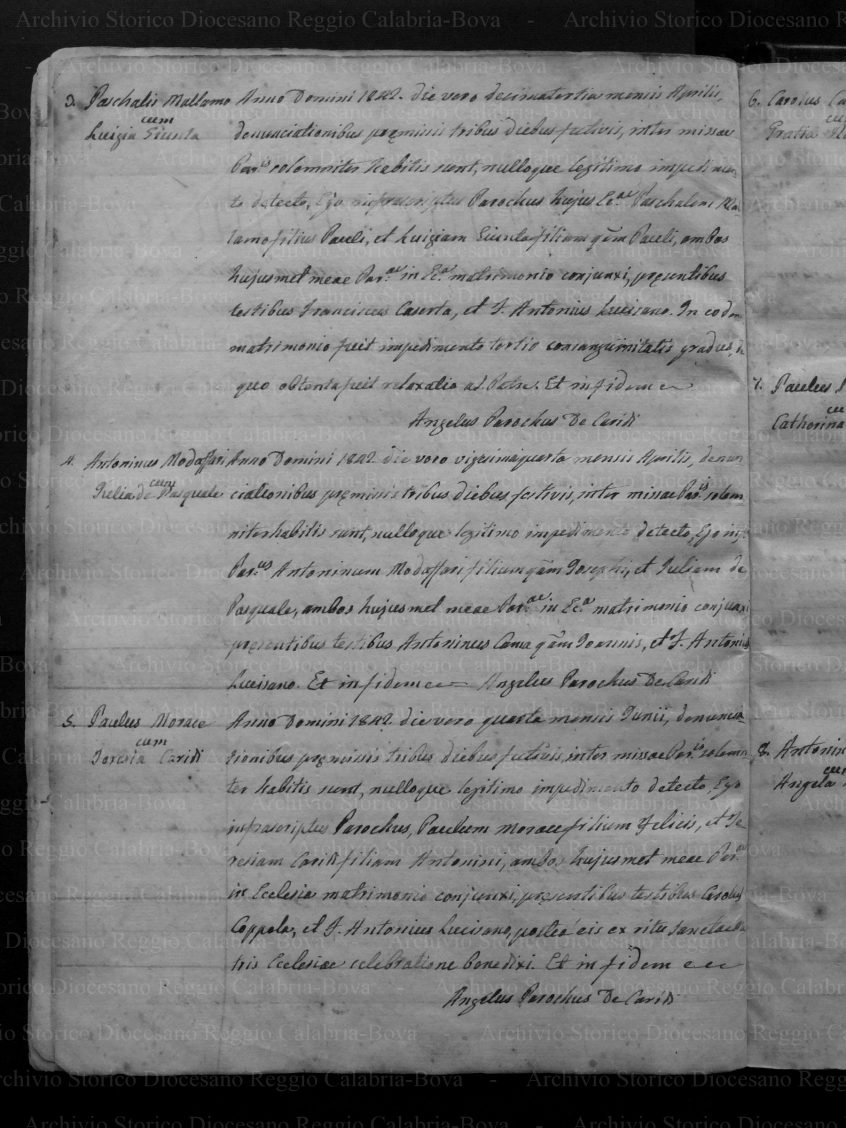 3. Paschalis Mallamo
cum
Luigia Giunta
Anno Domini 1842. die vero decimatertia mensis Aprilis,
denunciationibus pręmissis tribus diebus festivis, inter missae
Par.lis solemniter habitis sunt, nulloque legitimo impedimen
to detecto, Ego infrascriptus Parochus hujus Ec.ae Paschalem Mal
lamo filius Pauli, et Luigiam Giunta filiam qm̃ Pauli, ambos
hujusmet meae Par.ae in Ec.a matrimonio conjunxi, pręsentibus
testibus Franciscus Caserta, et S. Antonius Lucisano. In eodem
matrimonio fuit impedimento tertio consanguinitatis gradus, in
quo obtenta fuit relaxatio ad Patre. Et in fidem
Angelus Parochus De Caridi
4. Antoninus Modaffari
cum
Iulia de Pasquale
Anno Domini 1842 die vero vigesimaquarta mensis Aprilis, denun
ciationibus pręmissis tribus diebus festivis, inter missae Par.is solem
niter habitis sunt, nulloque legitimo impedimento detecto, Ego inf.
Par.us Antoninum Modaffari filium qm̃ Josephi, et Iuliam de
Pasquale, ambos hujusmet meae Par.ae in Ec.a matrimonio conjunxi
pręsentibus testibus Antoninus Cama qm̃ Joannis, et S. Antonius
Lucisano. Et in fidem Angelus Parochus De Caridi
5. Paulus Morace
cum
Teresia Caridi
Anno Domini 1842. die vero quarta mensis Junii, denuncia
tionibus pręmissis tribus diebus festivis, inter missae Par.is solemni
ter habitis sunt, nulloque legitimo impedimento detecto, Ego
infrascriptus Parochus, Paulum Morace filium Felicis, et Te
resiam Caridi filiam Antonini, ambos hujusmet meae Par.ae
in Ecclesia matrimonio conjunxi, pręsentibus testibus Carolus
Coppola, et S. Antonius Lucisano, postea eis ex ritu Sanctae Ma
tris Ecclesiae celebratione benedixi. Et in fidem
Angelus Parochus De Caridi
6. Carolus
Gratia
7. Paulus
Catherina
8. Antonin
cum
Angela
Archivio Storico Diocesano Reggio Calabria-Bova